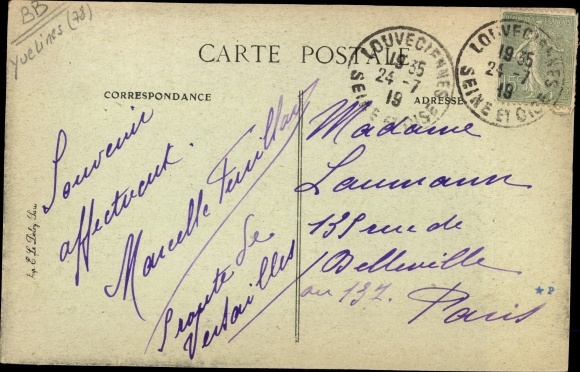 BB
Yvelines (78)
CARTE POSTALE
CORRESPONDANCE
ADRESSE
LOUVECIENNES
19 35
24 - 7
19
SEINE ET OISE
LOUVECIENNES
19 35
24 - 7
19
SEINE ET OISE
Souvenir
affectueux.
Marcelle
Profite de
Versailles
Madame
Laumann
135 rue de
Belleville
ou 137.
Paris
Imp. E. Le Deley, Paris